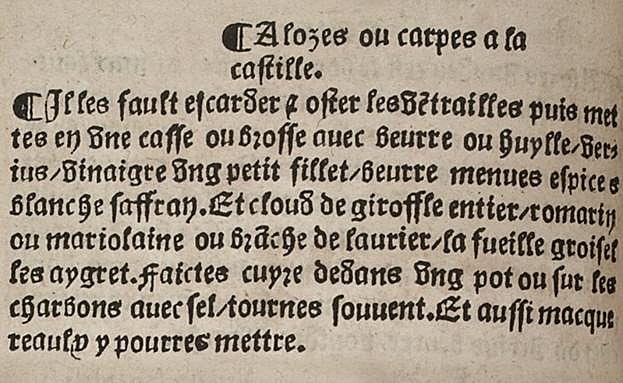 ¶ Alozes ou carpes a la
castille.
¶ Il les fault escarder ⁊ oster les vẽtrailles puis met
tes en vne casse ou brosse auec beurre ou huylle/ver-
ius/vinaigre vng petit fillet/beurre menues espices
blanche saffran. Et cloud de giroffle entier/romarin
ou mariolaine ou brãche de laurier/la fueille groisel
les aygret. Faictes cuyre dedans vng pot ou sur les
charbons auec sel/tournes souuent. Et aussi macque
reaulx y pourres mettre.